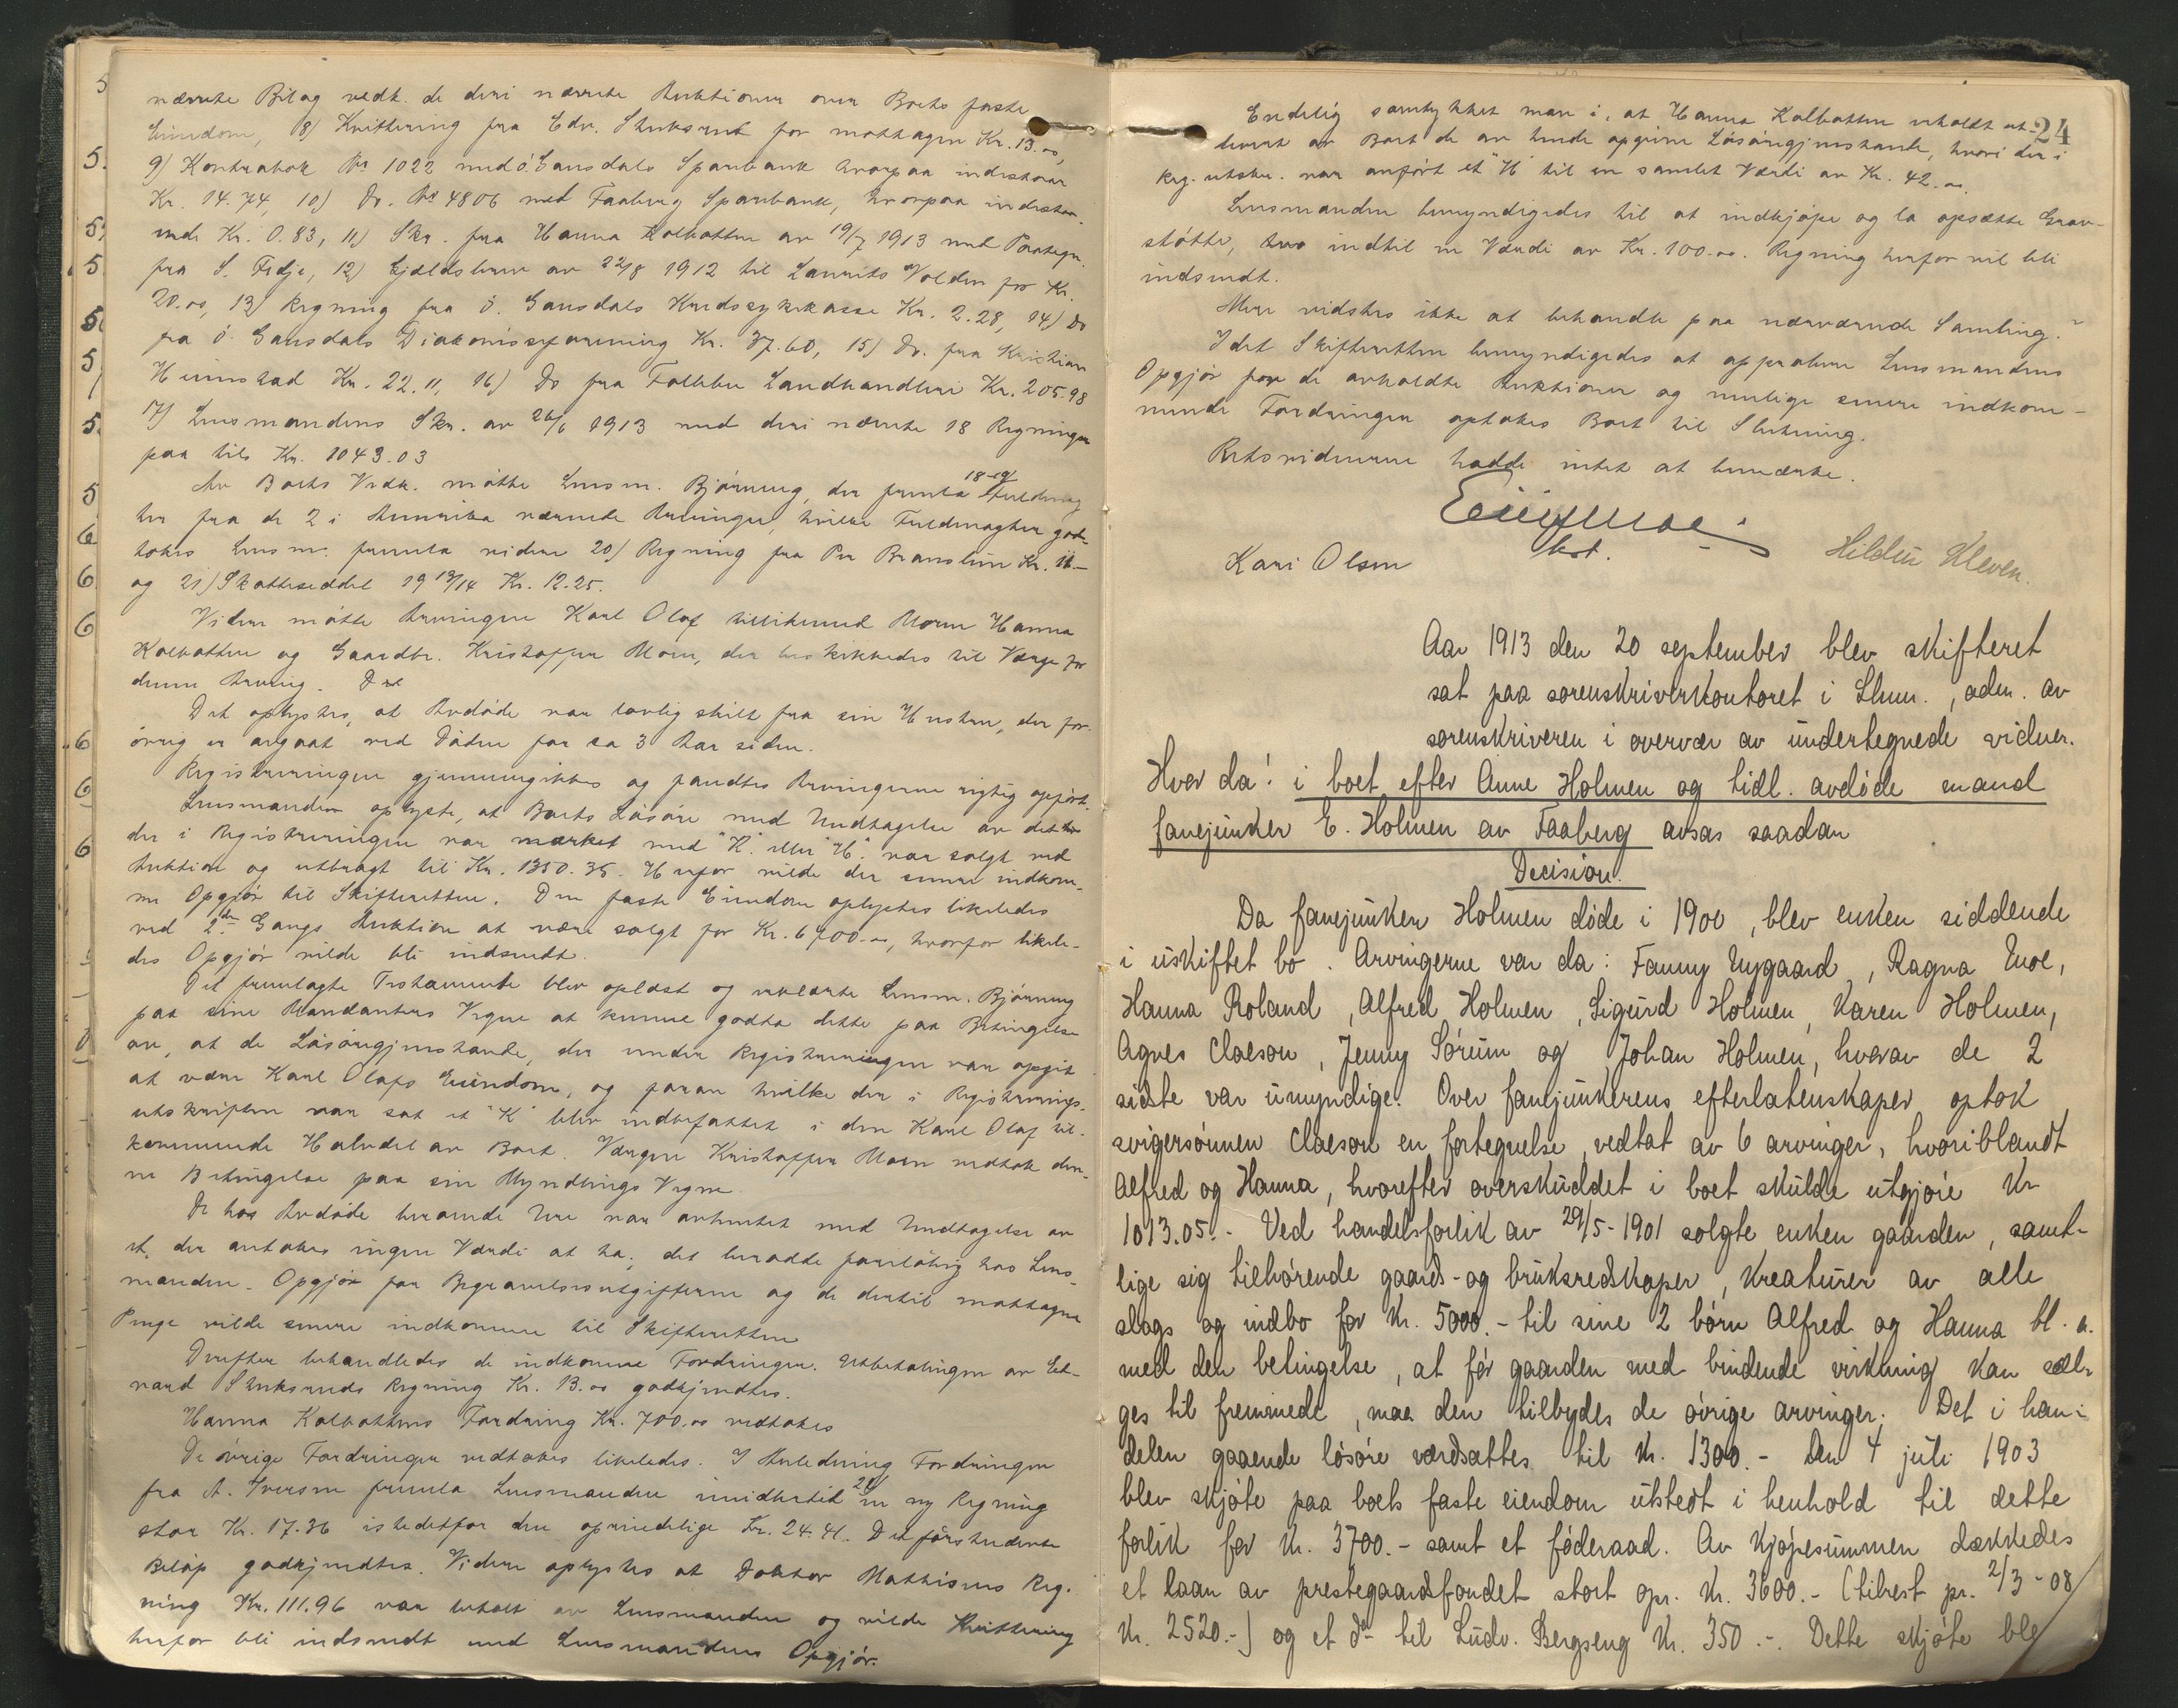 nævnte Bilag vedk. de deri nævnte Auktioner over Boets faste
Eiendom, 8) Kvittering fra Edv. Stuksrud for mottagne Kr. 13.00,
9) Kontrabok No 1022 med ö. Gausdals Sparebank hvorpaa indestaar
Kr. 14.74, 10) Do. No 4806 med Faaberg Sparebank, hvorpaa indestaa-
ende Kr. 0.83, 11) Skr. fra Hanna Kolbotten av 19/7 1913 med Paategn.
fra S. Fedje, 12) Gjældsbrev av 22/8 1912 til Laurits Volden for Kr.
20.00, 13) Regning fra ö. Gausdals Kredssykekasse Kr. 2.28, 14) Do
fra ö. Gausdals Diakonisseforening Kr. 37.60, 15) Do. fra Kristian
Heimstad Kr. 22.11, 16) Do fra Follebu Landhandleri Kr. 205.98
17) Lensmandens Skr. av 26/6 1913 med deri nævnte 18 Regninger
paa tils Kr. 1043.03
Av Boets Vedk. mötte Lensm. Bjørnung, der fremla 18-19) Fuldmag
ter fra de 2 i Amerika værende Arvinger, hvilke Fuldmagter god-
tokes Lensm. fremla videre 20) Regning fra Per Branslien Kr. 11.-
og 21) Skatteseddel 1913/14 Kr. 12.25.
Videre mötte Arvingen Karl Olaf tillikemed Moren Hanna
Kolbotten og Gaardbr. Kristoffer Moen, der beskikkedes til Værge for
denne Arving.
Det oplystes, at Avdöde var lovlig skilt fra sin Hustru, der for-
övrig er avgaat ved Döden for ca 3 Aar siden.
Registreringen gjennemgikkes og fandtes Arvingerne rigtig opfört.
Lensmanden oplyste, at Boets Lösöre med Undtagelse av dette
der i Registreringen var mærket med "K" eller "H" var solgt ved
Auktion og utbragt til Kr. 1350.35. Herfor vilde der senere indkom-
me Opgjör til Skifteretten. Den faste Eiendom oplystes likeledes
ved 2den Gangs Auktion at være solgt for Kr. 6700.00, hvorfor likele-
des Opgjör vilde bli indsendt.
Det fremlagte Testamente blev oplæst og erklærte Lensm. Bjørnung
paa sine Mandanters Vegne at kunne godta dette paa Betingelse
av, at de Lösöregjenstande, der under Registreringen var opgit
at være Karl Olafs Eiendom, og foran hvilke der i Registrerings-
utskriften var sat et "K" blev indbefattet i den Karl Olaf til-
kommende Halvdel av Boet. Værgen Kristoffer Moen vedtok den-
ne Betingelse paa sin Myndlings Vegne.
De hos Avdöde beroende Ure var avhentet med Undtagelse av
et, der antokes ingen Værdi at ha; det beroede foreløbig hos Lens-
manden. Opgjör for Begravelsesutgifterne og de dertil mottagne
Penge vilde senere indkomme til Skifteretten
Derefter behandledes de indkomne Fordringer. Utbetalingen av Ed-
vard Stuksruds Regning Kr. 13.00 godkjendtes.
Hanna Kolbottens Fordring Kr. 700.00 vedtokes
De övrige Fordringer vedtokes likeledes. I Anledning Fordringen
fra A. Iversen fremla Lensmanden imidlertid 22) en ny Regning
stor Kr. 17.36 istedetfor den oprindelige Kr. 24.41. Det förstnævnte
Belöp godkjendtes. Videre oplystes at Doktor Mathiesens Reg-
ning Kr. 111.96 var betalt av Lensmanden og vilde Kvittering
herfor bli indsendt med Lensmandens Opgjör.
24
Endelig samtykket man i, at Hanna Kolbotten erholdt ut-
leveret av Boet de av hende opgivne Lösöregjenstande, hvori der i
Reg. utskr. var anfört et "H" til en samlet Værdi av Kr. 42.00.
Lensmanden bemyndigedes til at indkjöpe og la opsætte Grav-
stötte, indtil en Værdi av Kr. 100.00. Regning herfor vil bli
indsendt.
Mere vidstes ikke at behandle paa nærværende Samling.
Idet Skifteretten bemyndigedes at approbere Lensmandens
Opgjör for de avholdte Auktioner og mulige senere indkom-
mende Fordringer optokes Boet til Slutning.
Retsvidnerne hadde intet at bemærke.
kst.
Kari Olsen
Hildur Kleven.
Aar 1913 den 20 september blev skifteret
sat paa sorenskriverkontoret i Lhmr., adm. av
sorenskriveren i overvær av undertegnede vidner.
Hvor da: i boet efter Anne Holmen og tidl. avdöde mand
fanejunker E. Holmen av Faaberg avsas saadan
Decision.
Da fanejunker Holmen döde i 1900, blev enken siddende
i uskiftet bo. Arvingerne var da: Fanny Nygaard, Ragna Moe,
Hanna Roland, Alfred Holmen, Sigurd Holmen, Karen Holmen,
Agnes Claeson, Jenny Sörum og Johan Holmen, hvorav de 2
sidste var umyndige. Over fanejunkerens efterlatenskaper optok
svigersönnen Claeson en fortegnelse, vedtat av 6 arvinger, hvoriblandt
Alfred og Hanna, hvorefter overskuddet i boet skulde utgjöre Kr
1013.05. - Ved handelsforlik av 29/5-1901 solgte enken gaarden, samt-
lige sig tilhörende gaards- og bruksredskaper, kreaturer av alle
slags og indbo for Kr. 5000.- til sine 2 börn Alfred og Hanna bl. a.
med den betingelse, at för gaarden med bindende virkning kan sæl-
ges til fremmede, maa den tilbydes de övrige arvinger. Det i han-
delen gaaende lösöre værdsattes til Kr. 1300.- Den 4 juli 1903
blev skjöte paa boets faste eiendom utstedt i henhold til dette
forlik for Kr. 3700.- samt et föderaad. Av kjöpesummen dækkedes
et laan av prestegaardfondet stort opr. Kr. 3600.- (tilrest pr. 2/3-08
Kr. 2520.-) og et do til Ludv. Bergseng Kr. 350.-. Dette skjöte blev